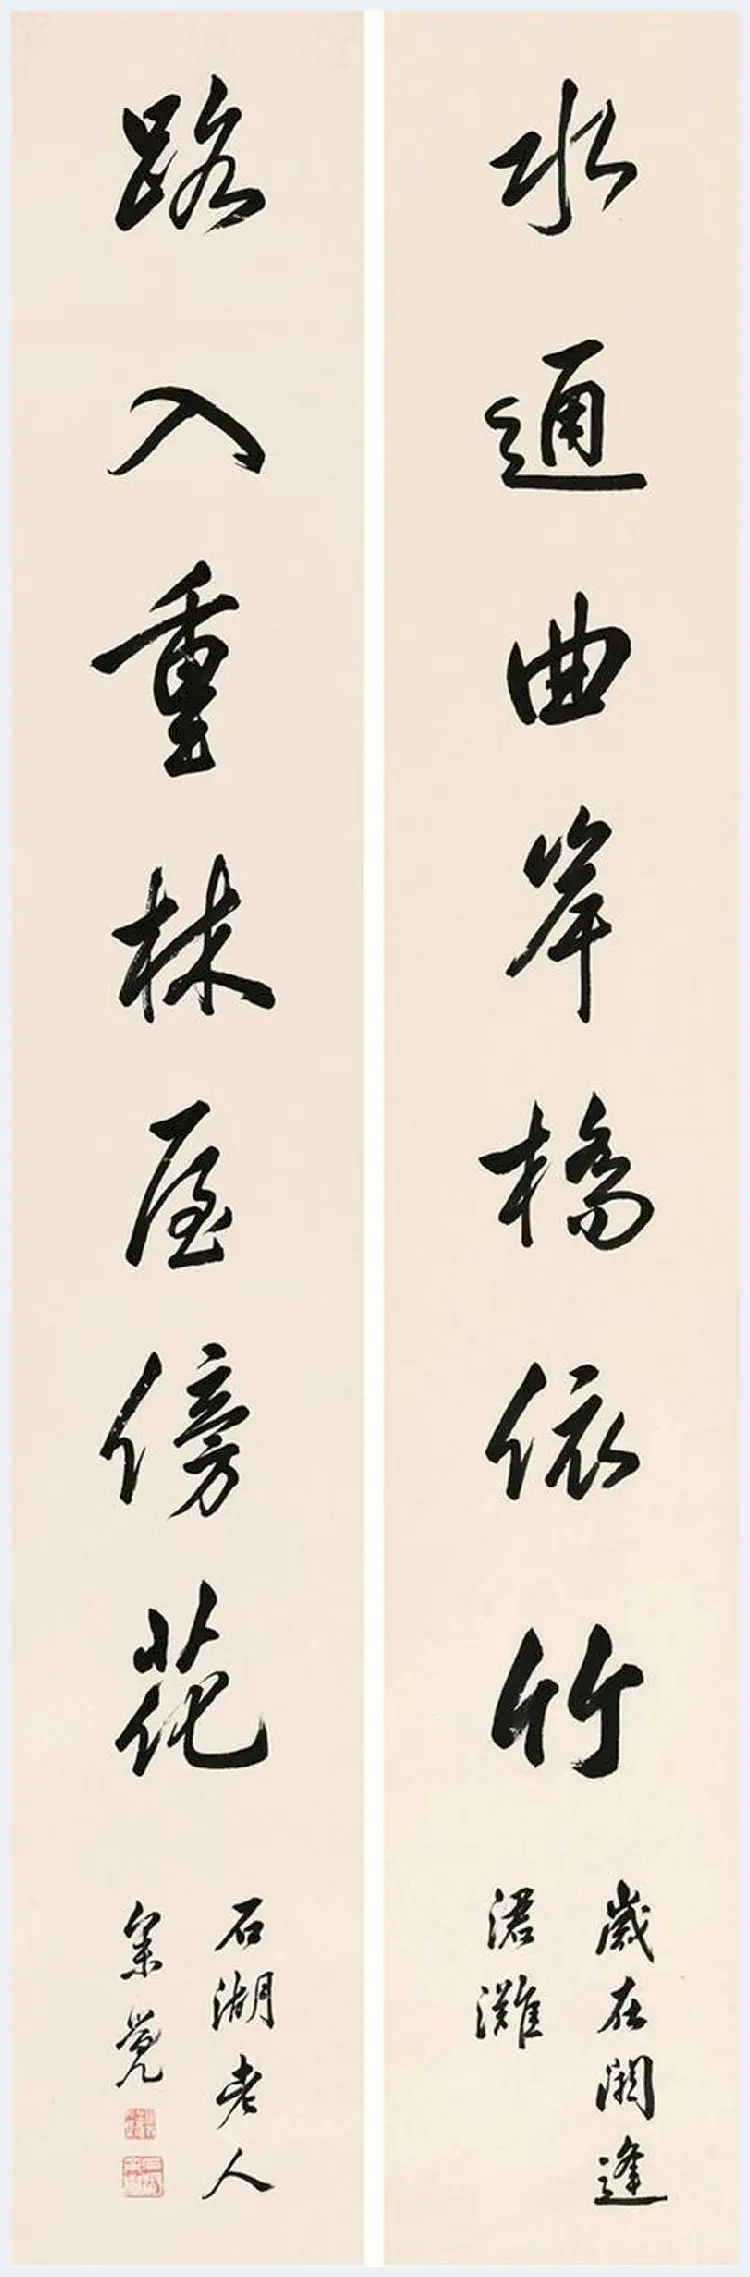 水通曲岸橋依竹
歲在閼逢
涒灘
路入重林屋傍花
石湖老人
余覺